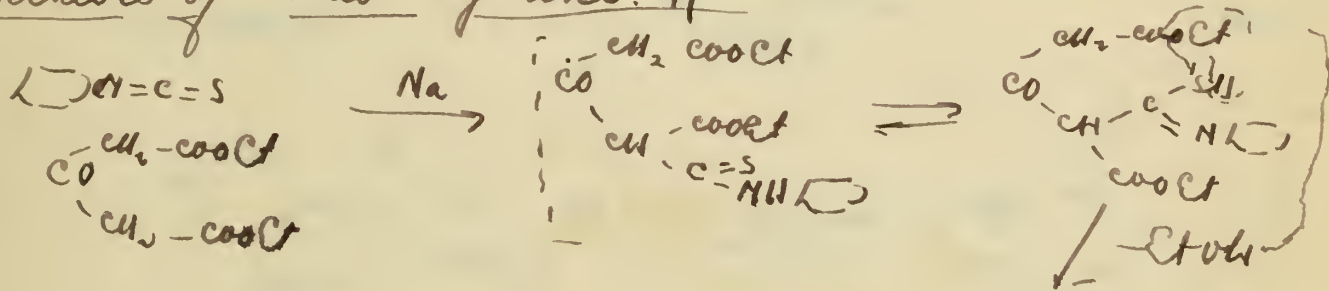 of
N=C=S
CO
CH2 - COOEt
CH2 - COOEt
Na
CO
CH2 COOEt
CH - COOEt
C=S
NH
CH2 - COOEt
CO
CH - C
SH
=N
COOEt
- EtOH